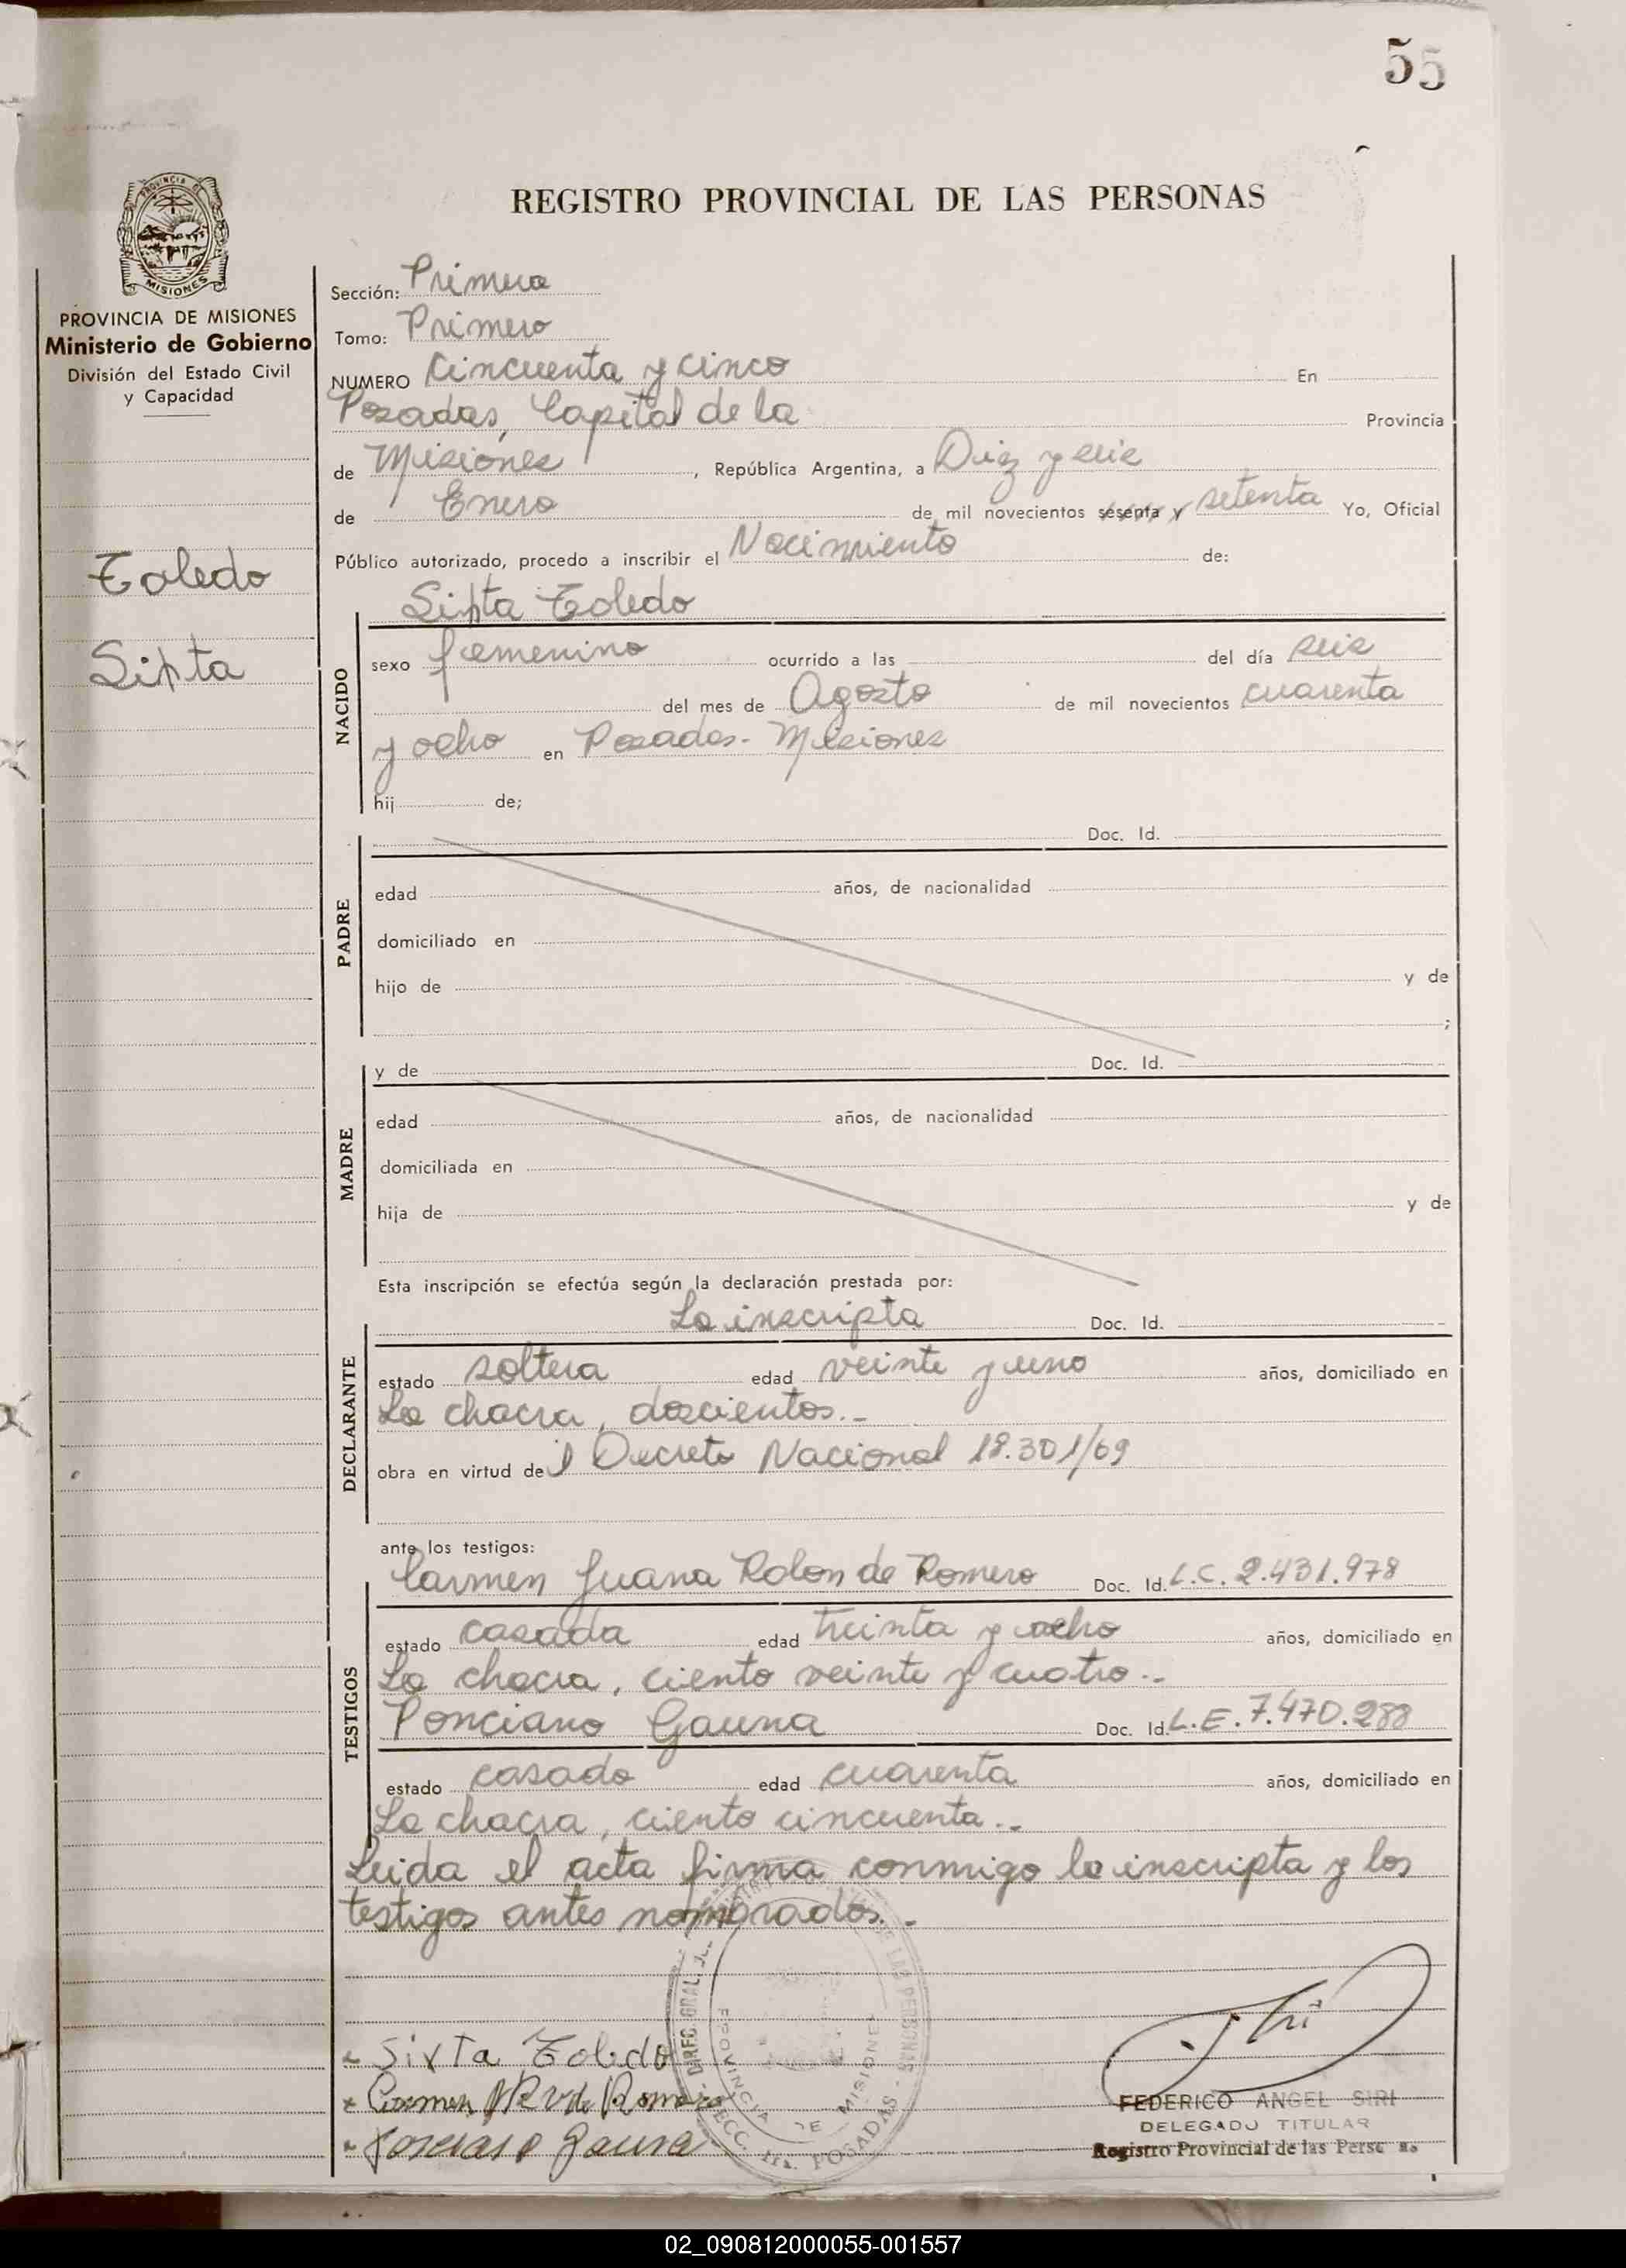 55
REGISTRO PROVINCIAL DE LAS PERSONAS
PROVINCIA DE MISIONES
PROVINCIA DE MISIONES
Ministerio de Gobierno
División del Estado Civil
y Capacidad
Toledo
Sixta
Sección: Primera
Tomo: Primero
NUMERO Cincuenta y cinco En
Posadas, Capital de la Provincia
de Misiones, República Argentina, a Diez y seis
de Enero de mil novecientos sesenta y setenta Yo, Oficial
Público autorizado, procedo a inscribir el Nacimiento de:
Sixta Toledo
NACIDO
sexo femenino ocurrido a las del día seis
del mes de Agosto de mil novecientos cuarenta
y ocho en Posadas - Misiones
hij de;
PADRE
Doc. Id.
edad años, de nacionalidad
domiciliado en
hijo de y de
;
MADRE
y de Doc. Id.
edad años, de nacionalidad
domiciliada en
hija de y de
Esta inscripción se efectúa según la declaración prestada por:
DECLARANTE
La inscripta Doc. Id.
estado soltera edad veinte y uno años, domiciliado en
La chacra, doscientos.-
obra en virtud del Decreto Nacional 18.301/69
ante los testigos:
TESTIGOS
Carmen Juana Rolon de Romero Doc. Id. L.C. 2.431.978
estado casada edad treinta y ocho años, domiciliado en
La chacra, ciento veinte y cuatro.-
Ponciano Gauna Doc. Id. L.E. 7.470.288
estado casado edad cuarenta años, domiciliado en
La chacra, ciento cincuenta.-
Leida el acta firma conmigo la inscripta y los
testigos antes nombrados.-
Sixta Toledo
Carmen de Romero
Ponciano Gauna
DIREC. GRAL. DE LAS PERSONAS
PROVINCIA DE MISIONES
POSADAS
FEDERICO ANGEL SIRI
DELEGADO TITULAR
Registro Provincial de las Personas
02_090812000055-001557